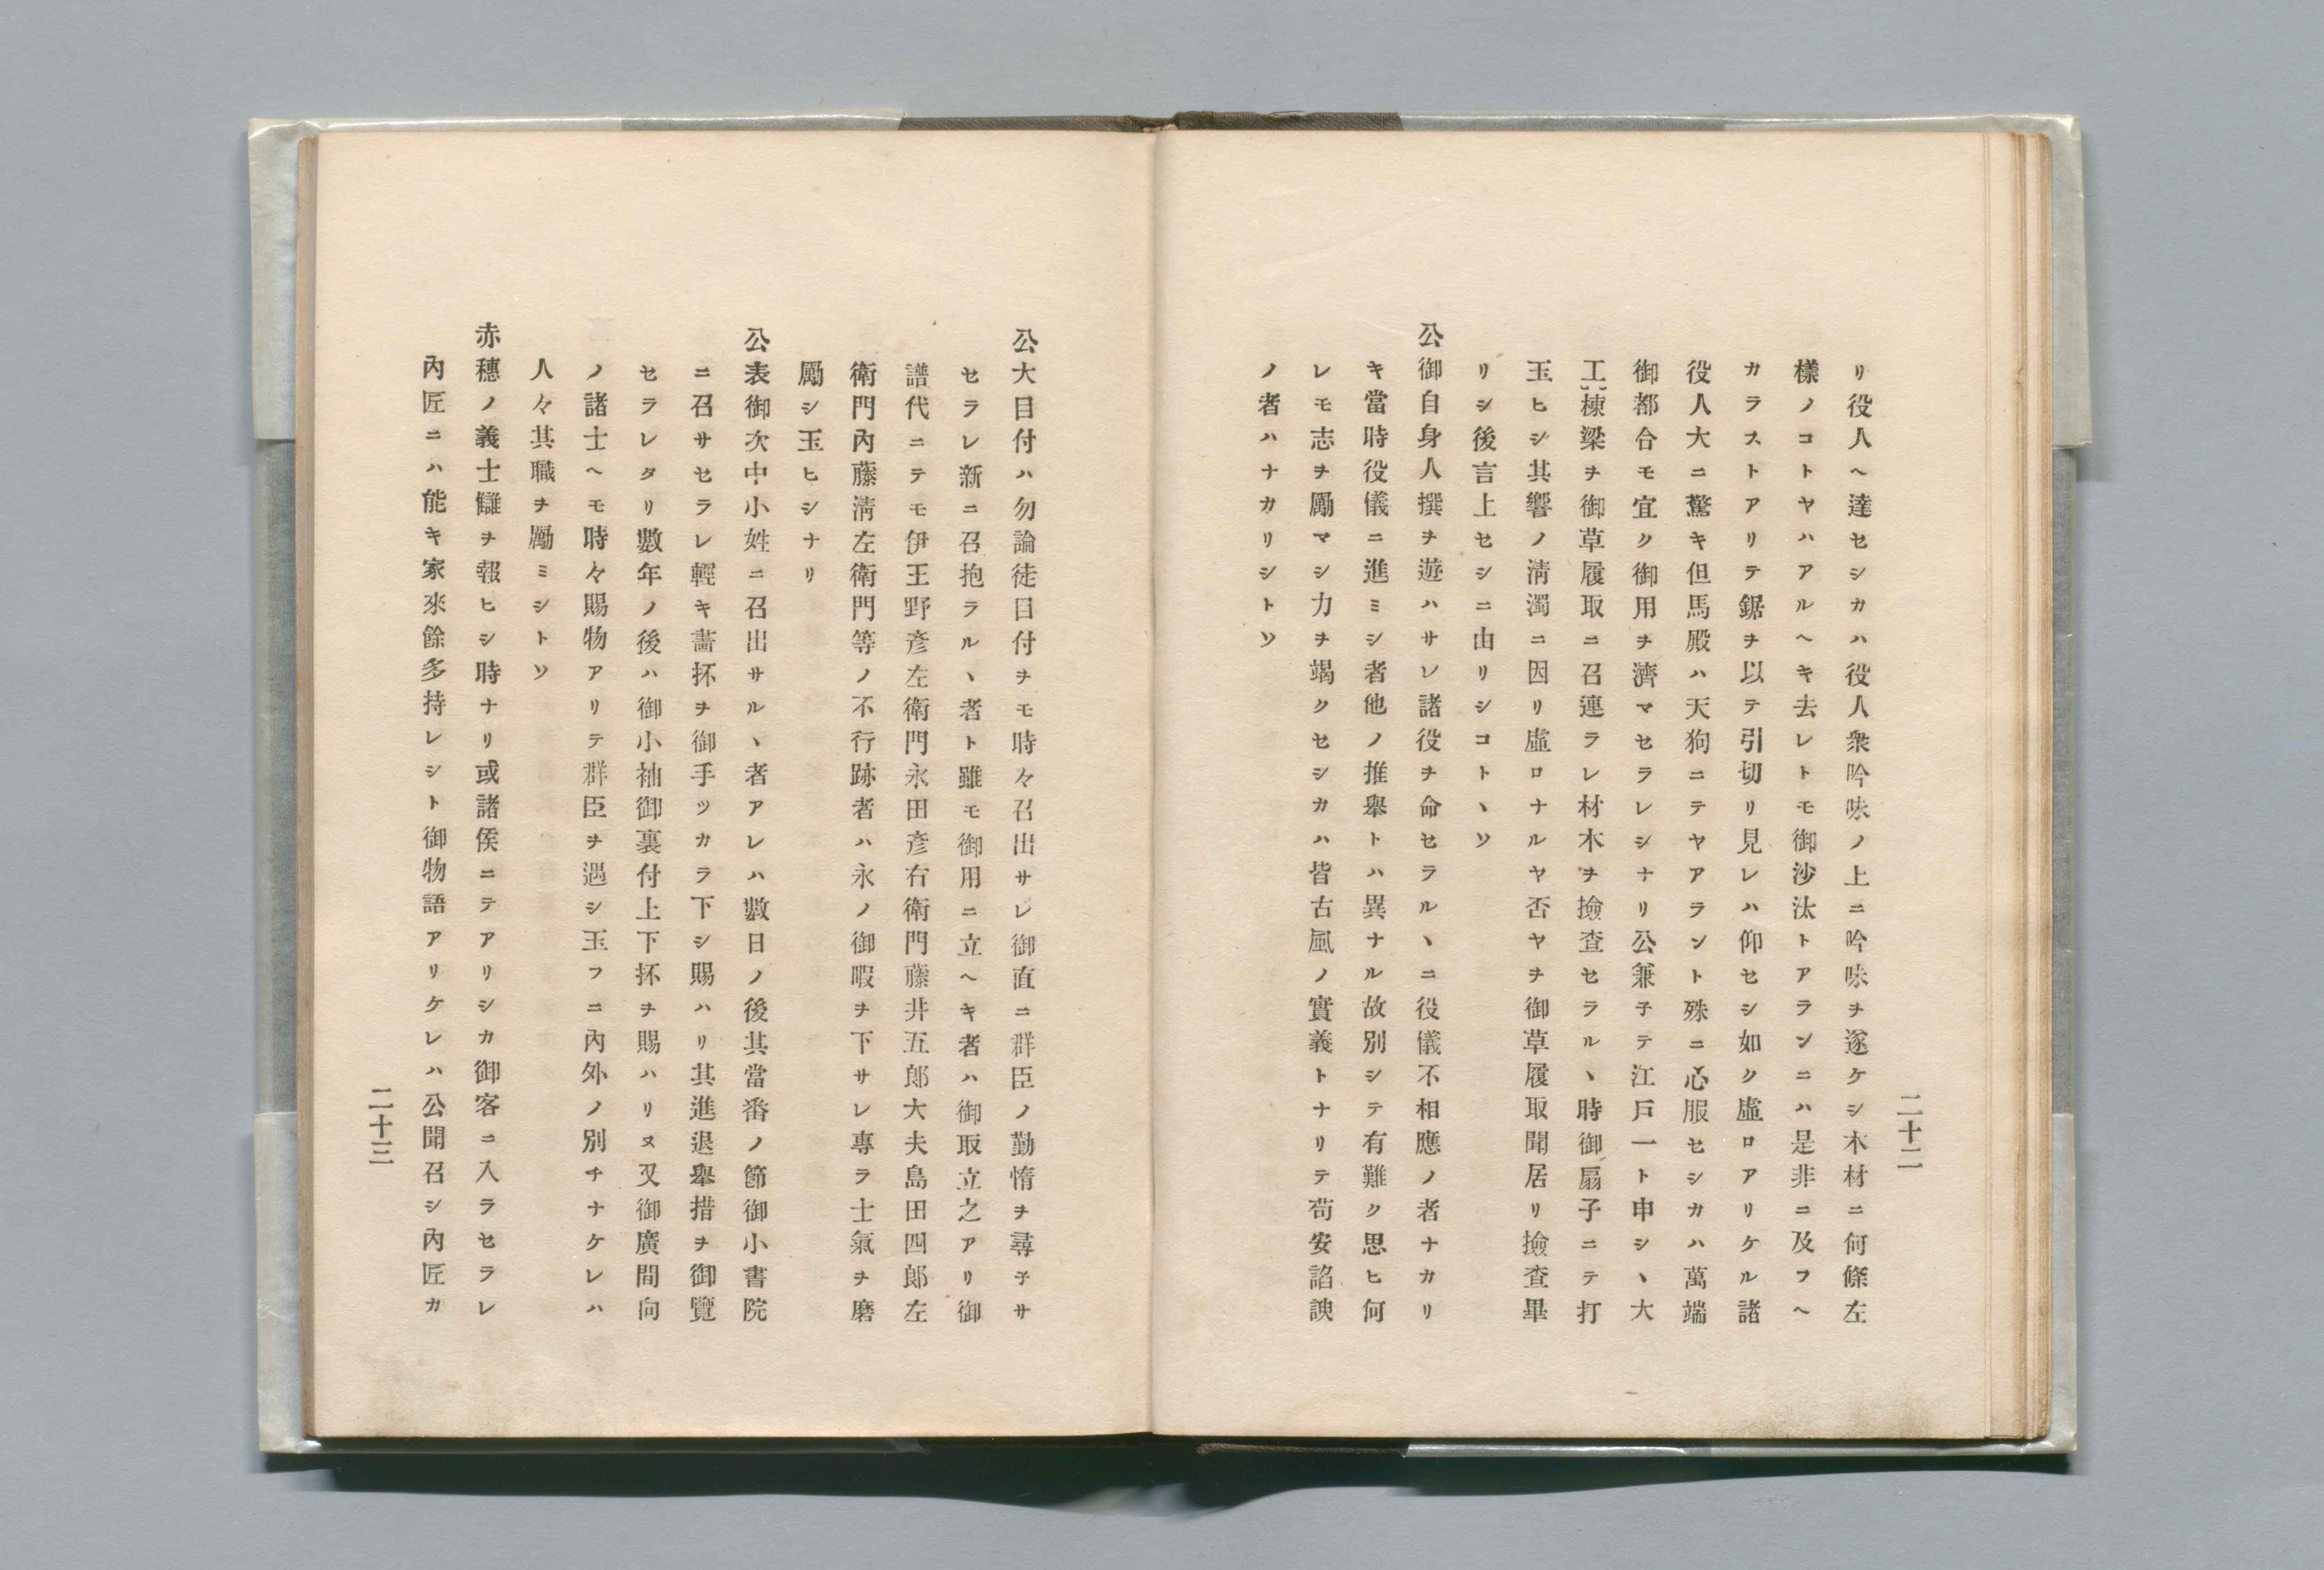 二十二
リ役人ヘ達セシカハ役人衆吟味ノ上ニ吟味ヲ遂ケシ木材ニ何條左
樣ノコトヤハアルヘキ去レトモ御沙汰トアランニハ是非ニ及フヘ
カラストアリテ鋸ヲ以テ引切リ見レハ仰セシ如ク虛ロアリケル諸
役人大ニ驚キ但馬殿ハ天狗ニテヤアラント殊ニ心服セシカハ萬端
御都合モ宜ク御用ヲ濟マセラレシナリ公兼子テ江戸一ト申シヽ大
工棟梁ヲ御草履取ニ召連ラレ材木ヲ撿査セラルヽ時御扇子ニテ打
玉ヒシ其響ノ淸濁ニ因リ虛ロナルヤ否ヤヲ御草履取聞居リ撿査畢
リシ後言上セシニ由リシコトヽソ
公御自身人撰ヲ遊ハサレ諸役ヲ命セラルヽニ役儀不相應ノ者ナカリ
キ當時役儀ニ進ミシ者他ノ推擧トハ異ナル故別シテ有難ク思ヒ何
レモ志ヲ勵マシ力ヲ竭クセシカハ皆古風ノ實義トナリテ苟安諂諛
ノ者ハナカリシトソ
公大目付ハ勿論徒目付ヲモ時々召出サレ御直ニ群臣ノ勤惰ヲ尋子サ
セラレ新ニ召抱ラルヽ者ト雖モ御用ニ立ヘキ者ハ御取立之アリ御
譜代ニテモ伊王野彥左衛門永田彥右衛門藤井五郎大夫島田四郎左
衛門內藤淸左衛門等ノ不行跡者ハ永ノ御暇ヲ下サレ專ラ士氣ヲ磨
勵シ玉ヒシナリ
公表御次中小姓ニ召出サルヽ者アレハ數日ノ後其當番ノ節御小書院
ニ召サセラレ輕キ畵抔ヲ御手ツカラ下シ賜ハリ其進退擧措ヲ御覽
セラレタリ數年ノ後ハ御小袖御裏付上下抔ヲ賜ハリヌ又御廣間向
ノ諸士ヘモ時々賜物アリテ群臣ヲ遇シ玉フニ內外ノ別チナケレハ
人々其職ヲ勵ミシトソ
赤穗ノ義士讎ヲ報ヒシ時ナリ或諸侯ニテアリシカ御客ニ入ラセラレ
內匠ニハ能キ家來餘多持レシト御物語アリケレハ公聞召シ內匠カ
二十三